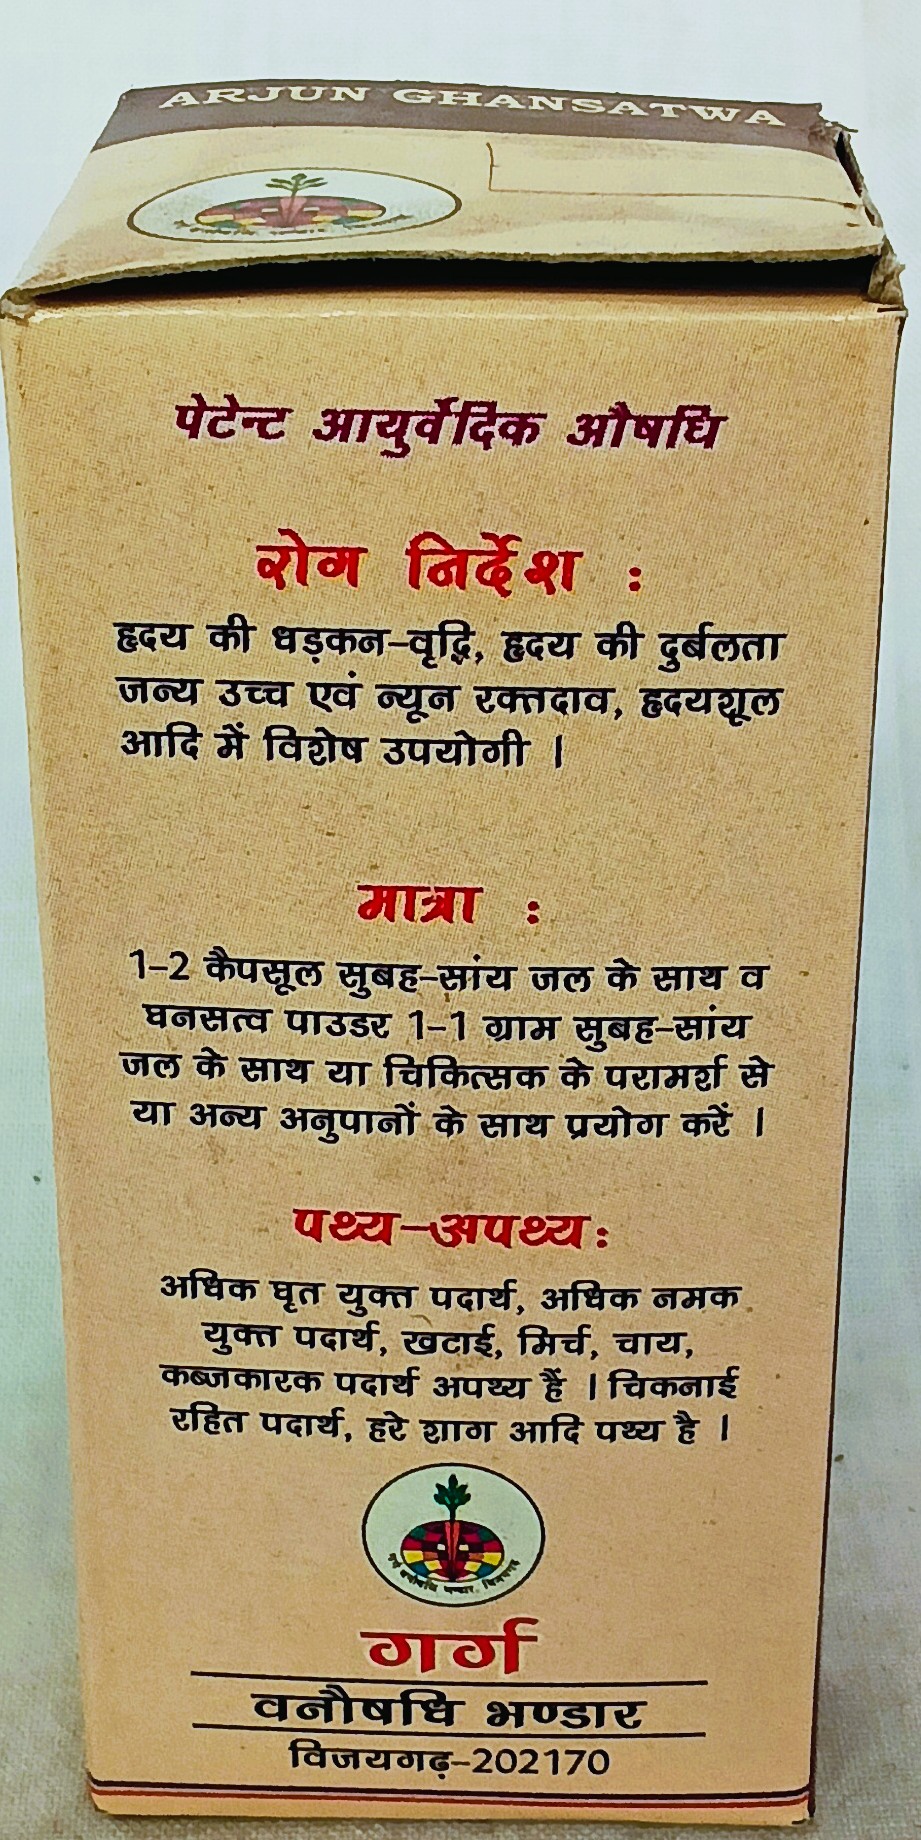 ARJUN GHANSATWA
पेटेन्ट आयुर्वेदिक औषधि
रोग निर्देश :
हृदय की धड़कन-वृद्धि, हृदय की दुर्बलता
जन्य उच्च एवं न्यून रक्तदाव, हृदयशूल
आदि में विशेष उपयोगी ।
मात्रा :
1-2 कैपसूल सुबह-सांय जल के साथ व
घनसत्व पाउडर 1-1 ग्राम सुबह-सांय
जल के साथ या चिकित्सक के परामर्श से
या अन्य अनुपानों के साथ प्रयोग करें ।
पथ्य-अपथ्य:
अधिक घृत युक्त पदार्थ, अधिक नमक
युक्त पदार्थ, खटाई, मिर्च, चाय,
कब्जकारक पदार्थ अपथ्य हैं । चिकनाई
रहित पदार्थ, हरे शाग आदि पथ्य है ।
गर्ग वनौषधि भण्डार, विजयगढ़
गर्ग
वनौषधि भण्डार
विजयगढ़-202170